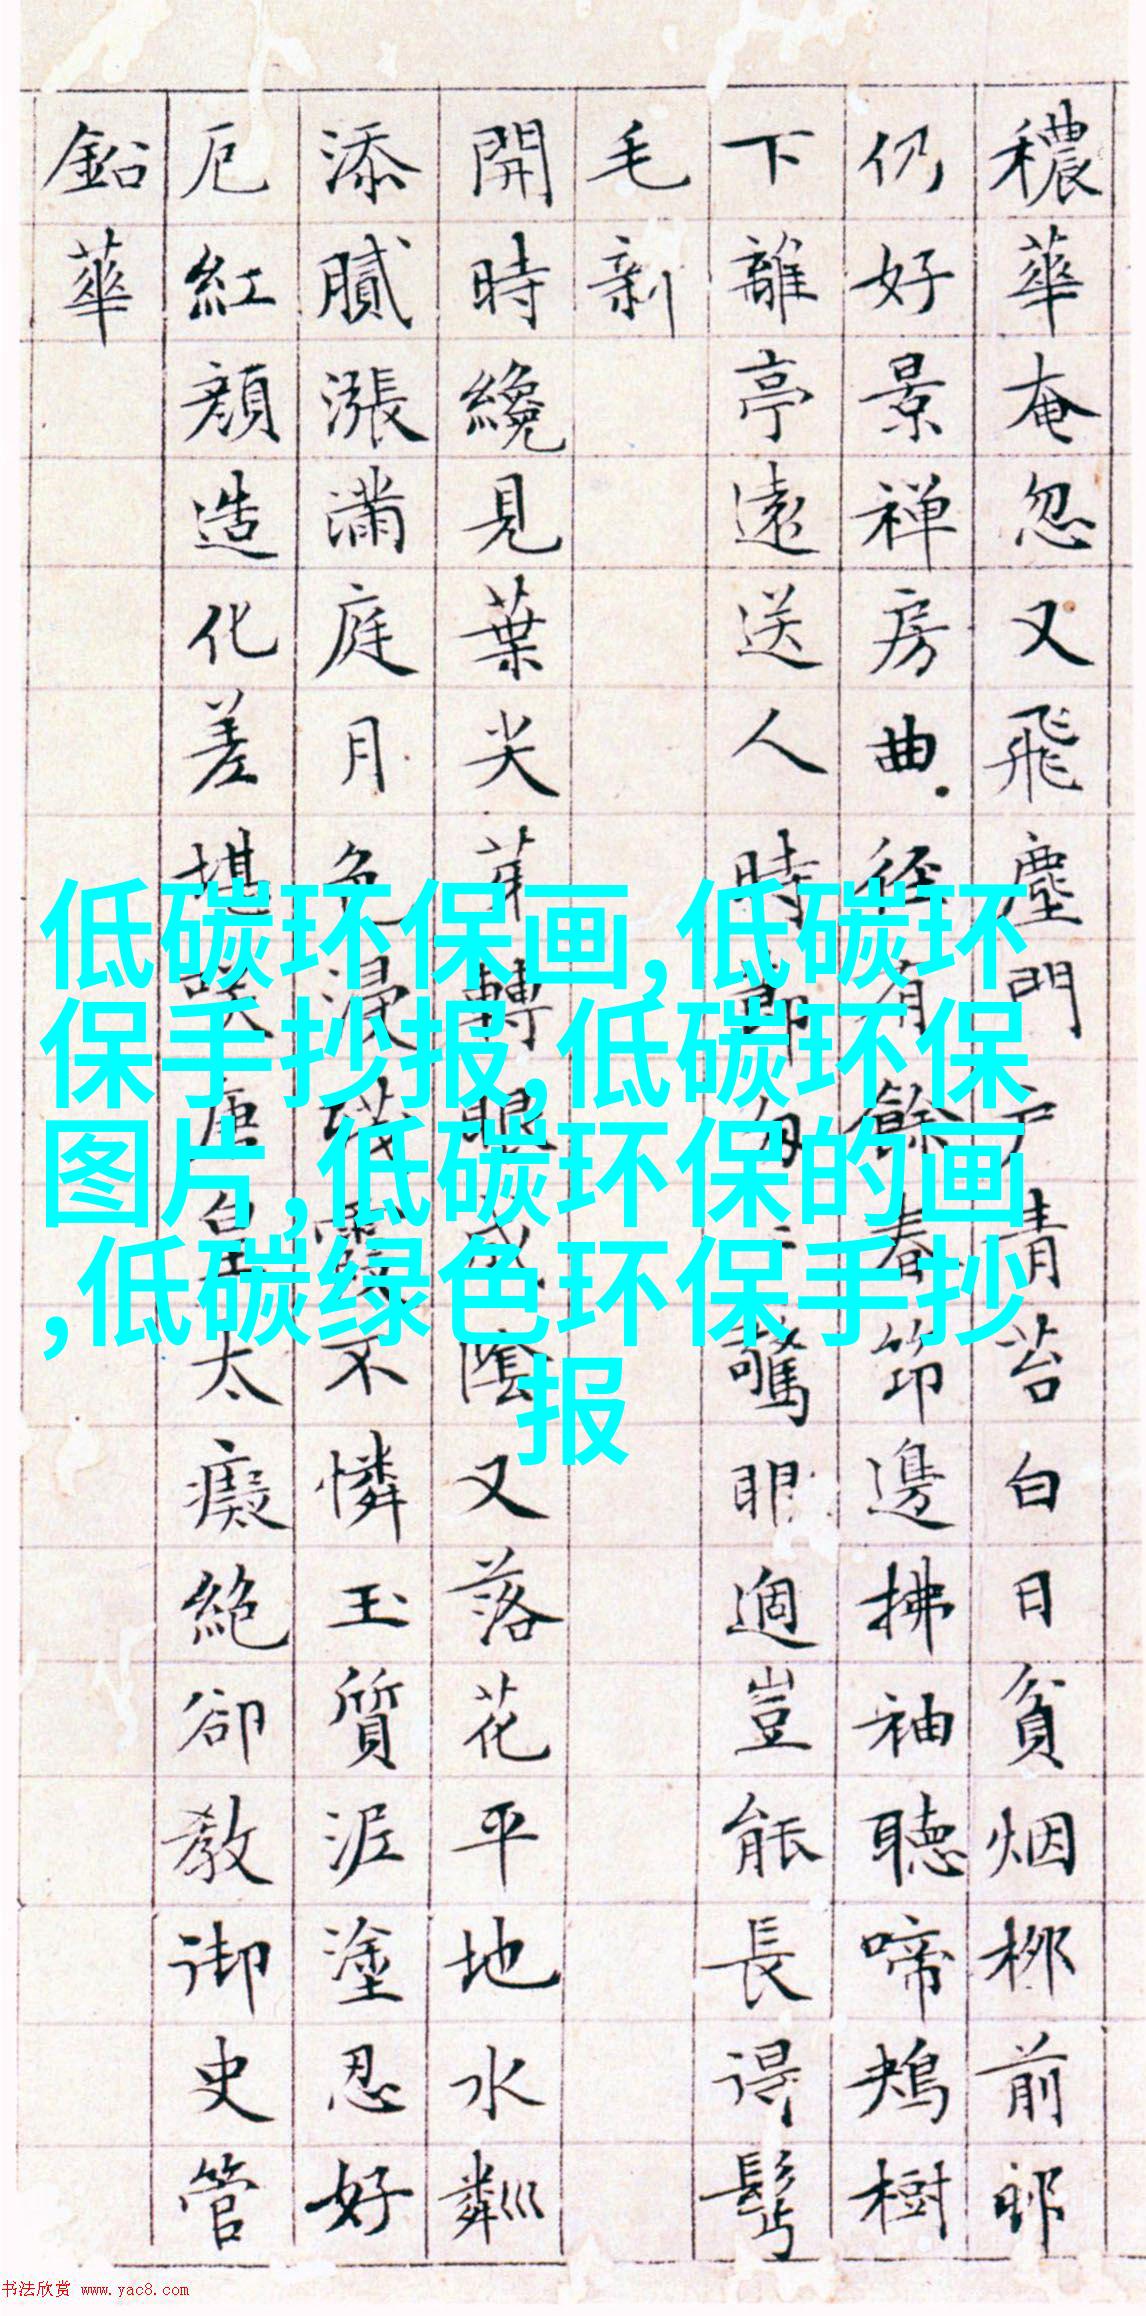 穠華奄忽又飛塵門戶青苔白日貧烟柳前邨
仍好景禅房曲径有餘春笻邊拂袖聽啼鴂樹
下離亭遠送人時節匆〻驚眼過豈能長得鬢
毛新
開時纔見葉尖芽轉眼成陰又落花平地水粼巛
添膩漲滿庭月色浸殘霞不憐玉質泥塗忍好
厄紅顏造化差堪咲唐皇太癡絕卻教御史管
鉛華
低碳环保画,低碳环
保手抄报,低碳环保
图片,低碳环保的画
,低碳绿色环保手抄
报
书法欣赏 www.yac8.com